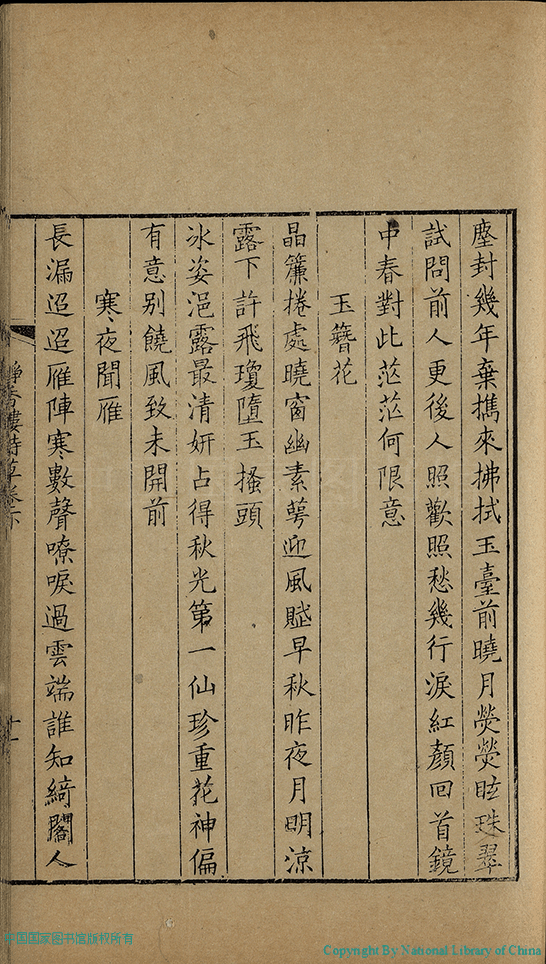 塵封幾年棄擕來拂拭玉臺前曉月熒熒眩珠翠
試問前人更後人照歡照愁幾行淚紅顏回首鏡
中春對此茫茫何限意
玉簪花
晶簾捲處曉窗幽素萼迎風賦早秋昨夜月明涼
露下許飛瓊墮玉搔頭
冰姿浥露最清妍占得秋光第一仙珍重花神偏
有意别饒風致未開前
寒夜聞雁
長漏迢迢雁陣寒數聲嘹唳過雲端誰知綺閣人
樓詩草卷下
十一
中国国家图书馆版权所有
Copyright By National Library of China